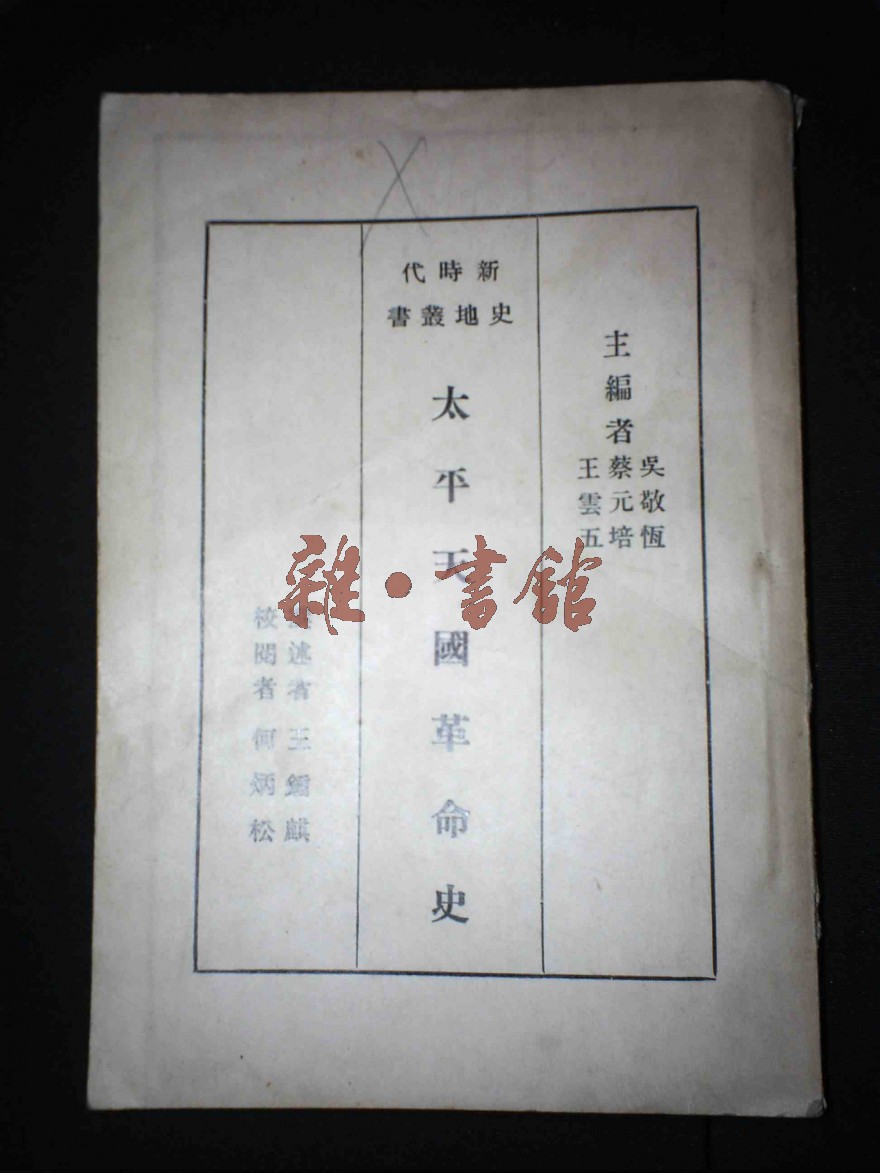 主編者
吳敬恆
蔡元培
王雲五
新時代
史地叢書
太平天國革命史
述者 王鍾麒
校閱者 何炳松
雜·書館